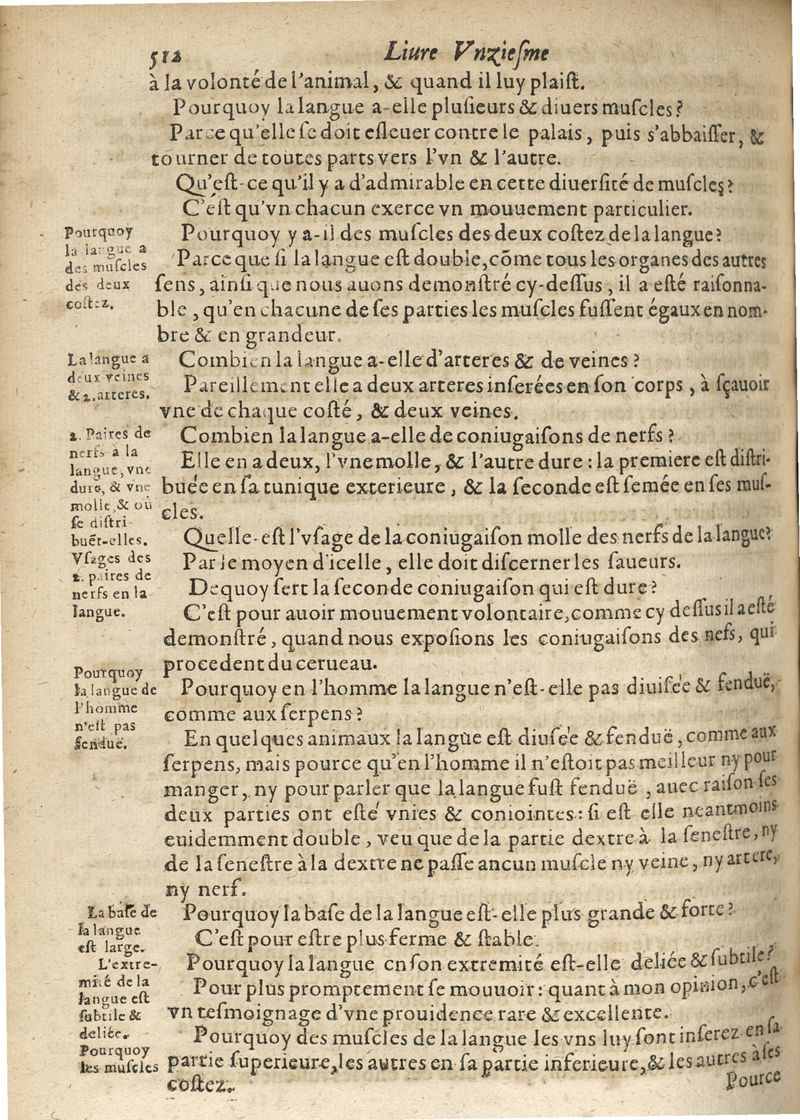 512 Liure Vnzieſme
à la volonté de l'animal, & quand il luy plaiſt.
Pourquoy la langue a-elle pluſieurs & diuers muſcles?
Parce qu'elle ſe doit eſleuer contre le palais, puis s'abbaiſſer, &
tourner de toutes parts vers l'vn & l'autre.
Qu'eſt-ce qu'il y a d'admirable en cette diuerſité de muſcles?
C'eſt qu'vn chacun exerce vn mouuement particulier.
Pourquoy y a-il des muſcles des deux coſtez de la langue?
Parce que ſi la langue eſt double, cõme tous les organes des autres
ſens, ainſi que nous auons demonſtré cy-deſſus, il a eſté raiſonna-
ble, qu'en chacune de ſes parties les muſcles fuſſent égaux en nom-
bre & en grandeur.
Combien la langue a-elle d'arteres & de veines?
Pareillement elle a deux arteres inſerées en ſon corps, à ſçauoir
vne de chaque coſté, & deux veines.
Combien la langue a-elle de coniugaiſons de nerfs?
Elle en a deux, l'vne molle, & l'autre dure: la premiere eſt diſtri-
buée en ſa tunique exterieure, & la ſeconde eſt ſemée en ſes muſ-
cles.
Quelle-eſt l'vſage de la coniugaiſon molle des nerfs de la langue?
Par le moyen d'icelle, elle doit diſcerner les ſaueurs.
Dequoy ſert la ſeconde coniugaiſon qui eſt dure?
C'eſt pour auoir mouuement volontaire, comme cy deſſus il a eſté
demonſtré, quand nous expoſions les coniugaiſons des nefs, qui
procedent du cerueau.
Pourquoy en l'homme la langue n'eſt-elle pas diuiſée & fenduë,
comme aux ſerpens?
En quelques animaux la langue eſt diuſée & fenduë, comme aux
ſerpens, mais pource qu'en l'homme il n'eſtoit pas meilleur ny pour
manger, ny pour parler que la langue fuſt fenduë, auec raiſon ſes
deux parties ont eſté vnies & coniointes: ſi eſt elle neantmoins
euidemment double, veu que de la partie dextre à la ſeneſtre, ny
de la ſeneſtre à la dextre ne paſſe ancun muſcle ny veine, ny artere,
ny nerf.
Pourquoy la baſe de la langue eſt-elle plus grande & forte?
C'eſt pour eſtre plus ferme & ſtable.
Pourquoy la langue en ſon extremité eſt-elle deliée & ſubtile?
Pour plus promptement ſe mouuoir: quant à mon opinion, c'eſt
vn teſmoignage d'vne prouidence rare & excellente.
Pourquoy des muſcles de la langue les vns luy ſont inſerez en ſa
partie ſuperieure, les autres en ſa partie inferieure, & les autres à ſes
coſtez.
Pource
Pourquoy
la langue a
des muſcles
des deux
coſtez.
La langue a
deux veines
& 2. arteres.
2. Paires de
nerfs à la
langue, vne
dure, & vne
molle, & où
ſe diſtri
buẽt-elles.
Vſages des
2. paires de
nerfs en la
langue.
Pourquoy
la langue de
l'homme
n'eſt pas
fenduë.
La baſe de
la langue
eſt large.
L'extre-
mité de la
langue eſt
ſubtile &
deliée.
Pourquoy
les muſcles